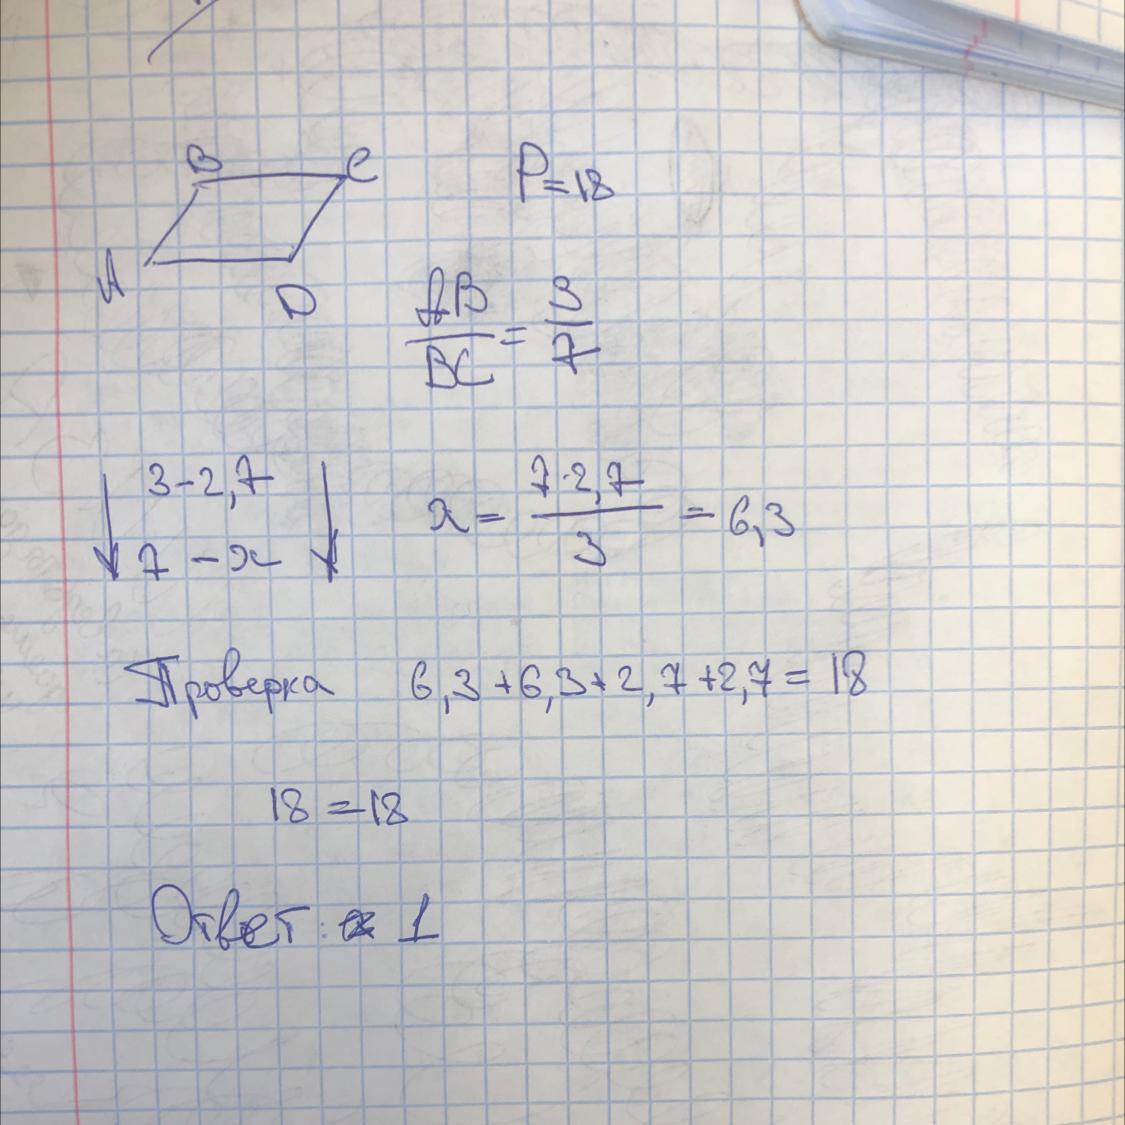 B C
A D
P=18
AB/BC = 3/7
3-2,7
7-x
x = 7·2,7/3 = 6,3
Проверка 6,3+6,3+2,7+2,7=18
18=18
Ответ: 1